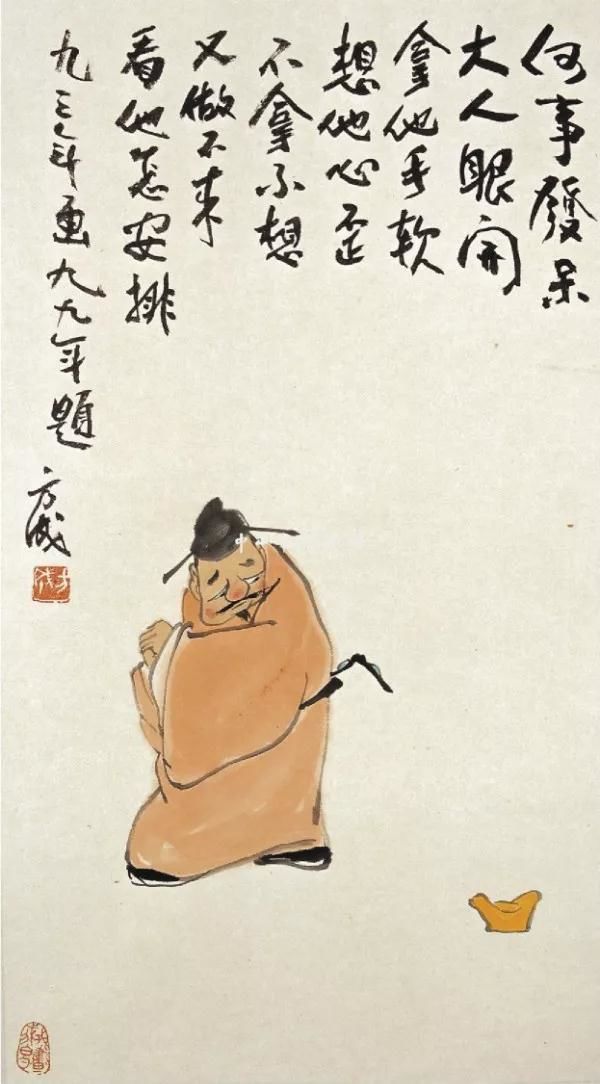 何事發呆
大人眼開
拿他手软
想他心歪
不拿不想
又做不来
看他怎安排
九三年画九九年題
方成
方成